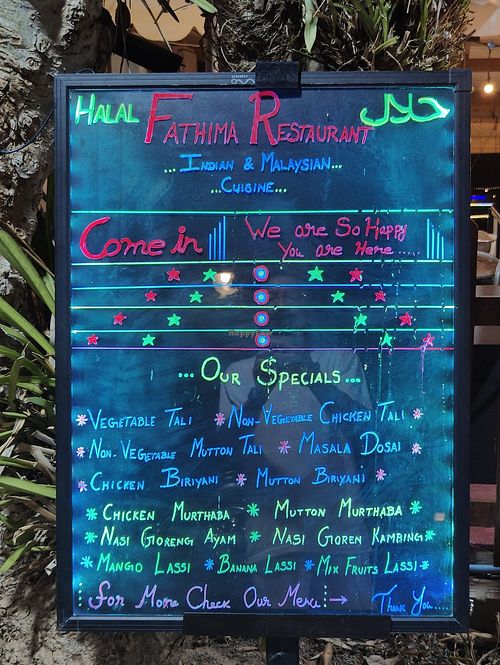 HALAL FATHIMA RESTAURANT حلال
...INDIAN & MALAYSIAN...
...CUISINE...
Come in We are So Happy
You are Here.....
...OUR SPECIALS...
*VEGETABLE TALI *NON-VEGETABLE CHICKEN TALI *
*NON-VEGETABLE MUTTON TALI * MASALA DOSAI *
*CHICKEN BIRIYANI * MUTTON BIRIYANI *
*CHICKEN MURTHABA * MUTTON MURTHABA *
*NASI GIORENG AYAM * NASI GOREN KAMBING*
*MANGO LASSI *BANANA LASSI *MIX FRUITS LASSI *
For More Check Our Menu → Thank You....